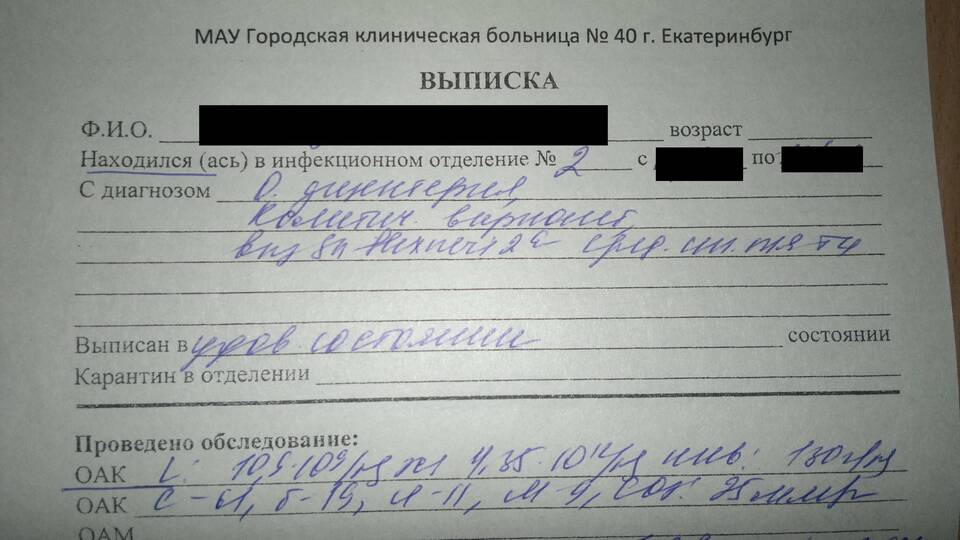 МАУ Городская клиническая больница № 40 г. Екатеринбург
ВЫПИСКА
Ф.И.О. возраст
Находился (ась) в инфекционном отделение № 2 с по
С диагнозом О. дизентерия,
Колитич. вариант,
сред. ст. тяжести
Выписан в удов состоянии состоянии
Карантин в отделении
Проведено обследование:
ОАК L: 10,5·10⁹/л 4,35·10¹²/л 130 г/л
ОАК С-61, П-19, Л-11, М-9, СОЭ: 25 мм/ч
ОАМ